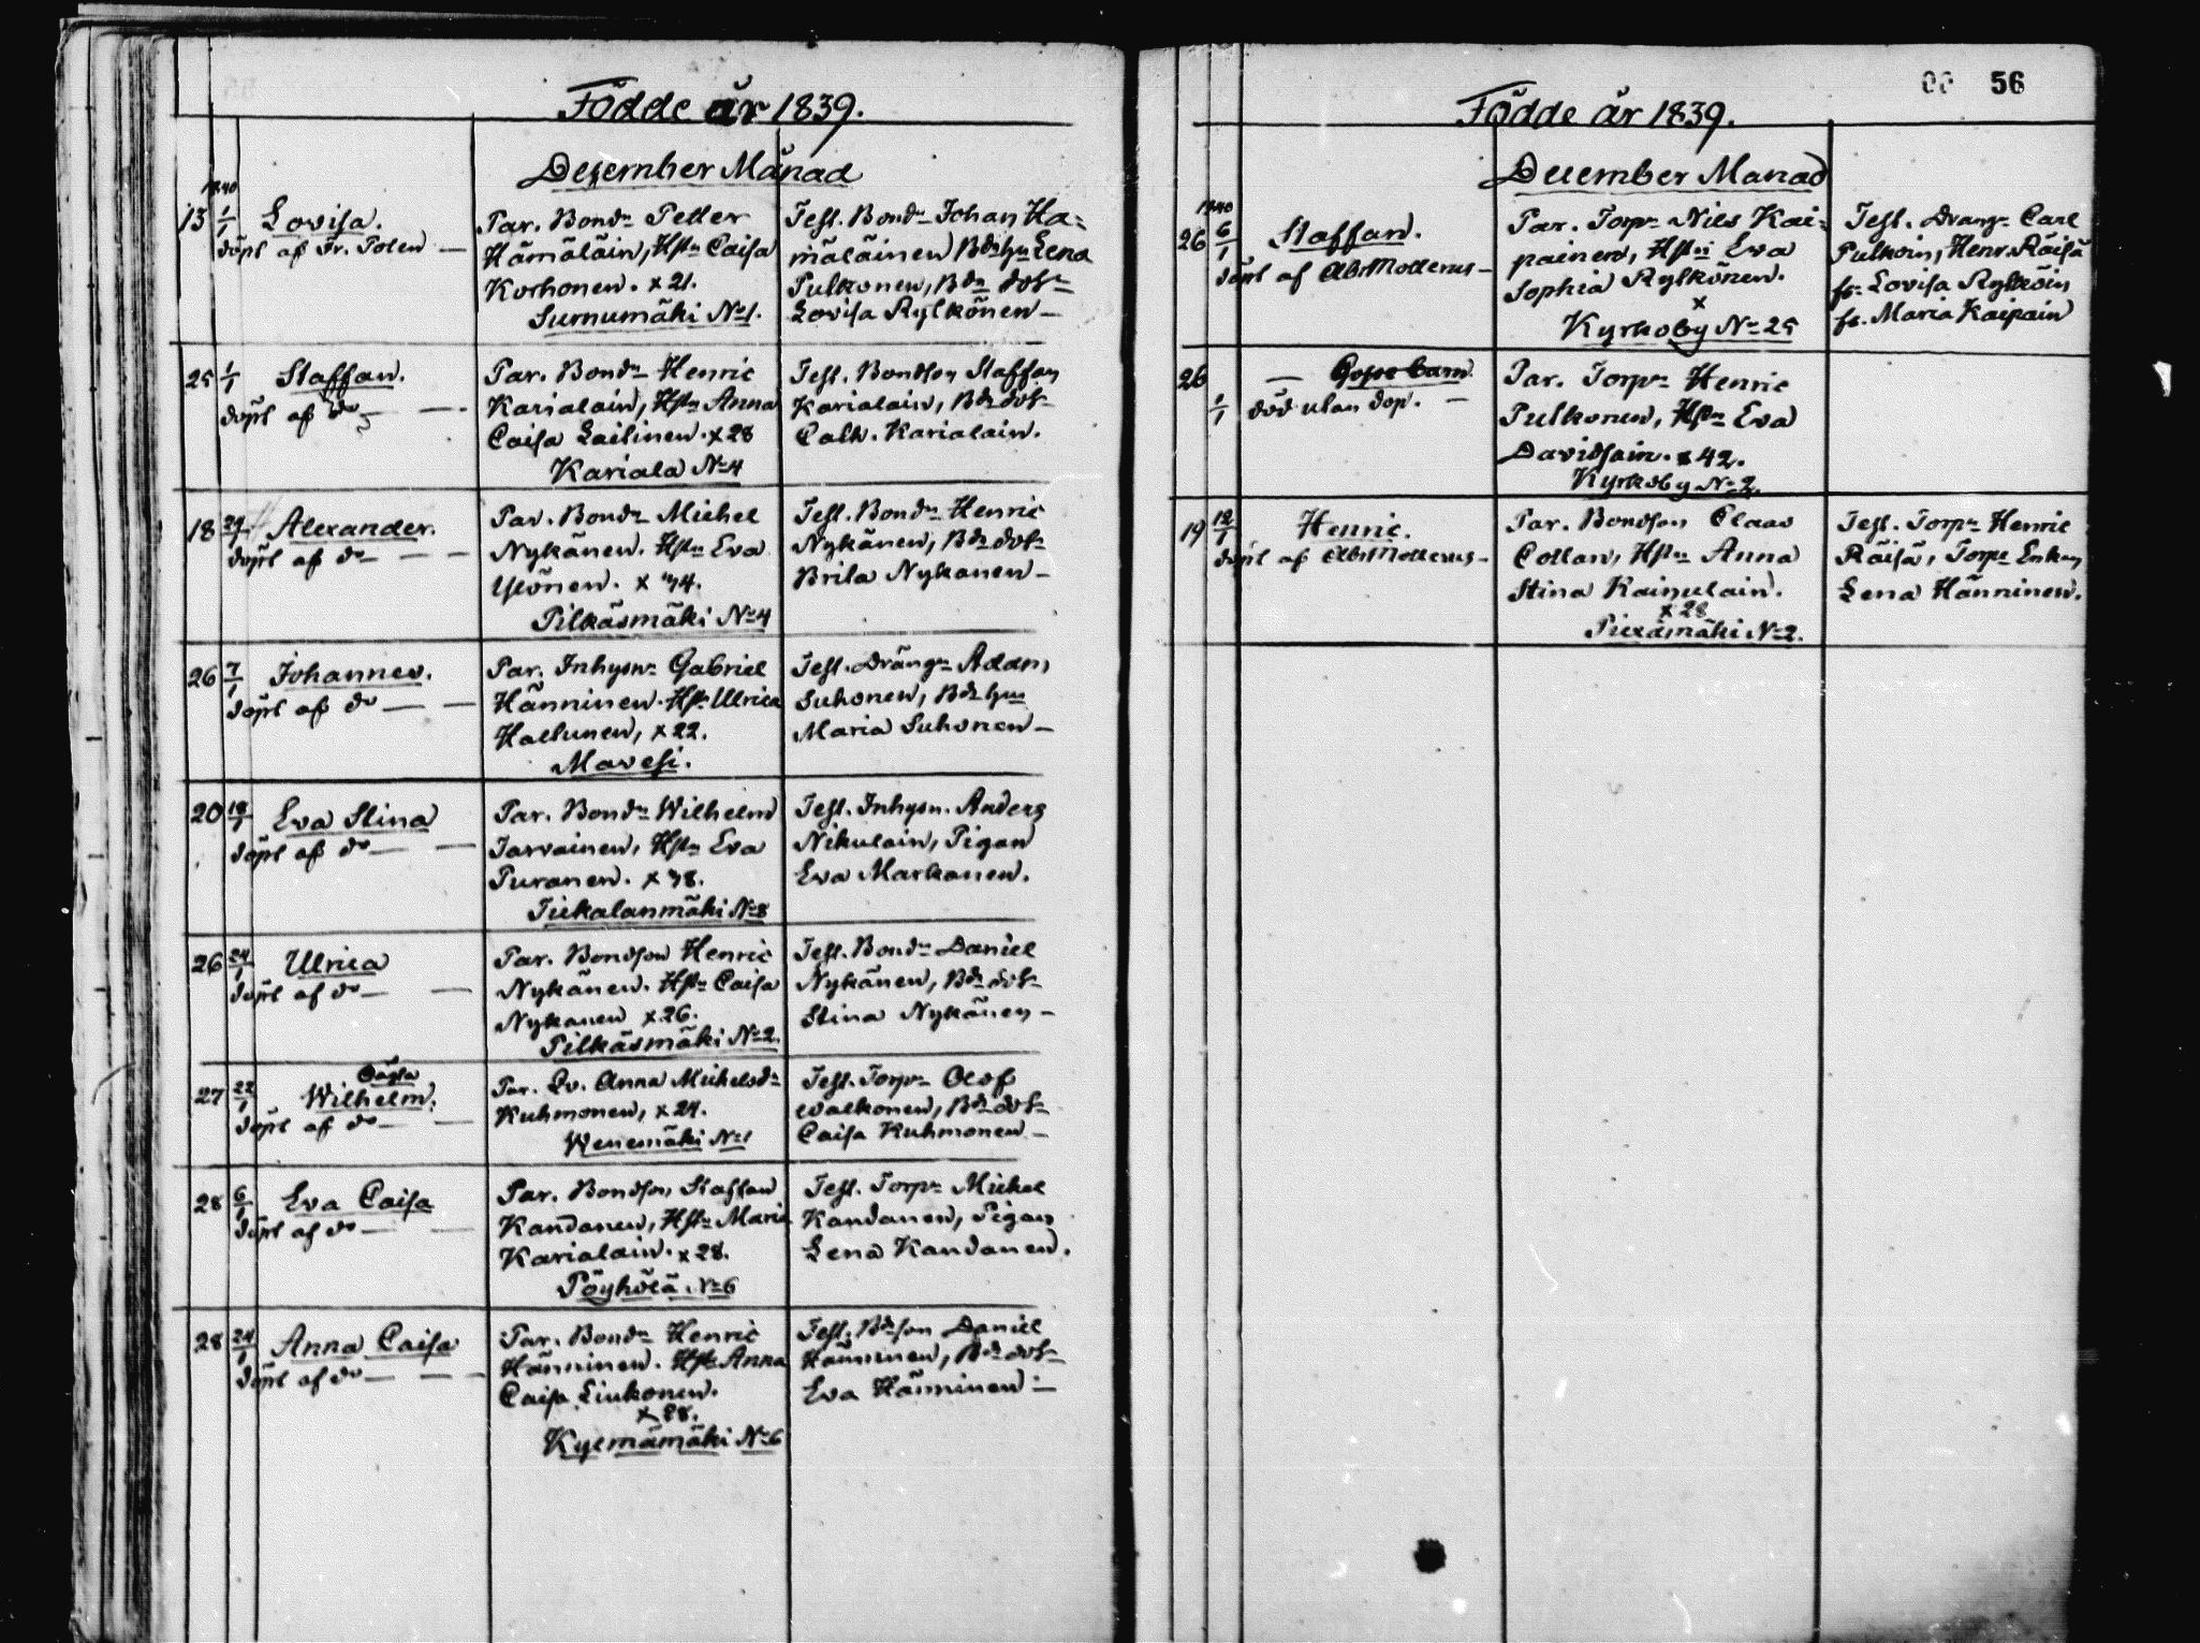 Födde år 1839.
Desember Månad
1840
13 1/1 Lovisa.
döpt af Fr. Polen —
Par. Bondn Petter
Hämäläin, Hstn Caisa
Korhonen. x 21.
Surnumäki No 1.
Test. Bondn Johan Hä=
mäläinen Bdehyn Lena
Pulkonen, Bdn dotr
Lovisa Rylkönen —
25 1/1 Staffan.
döpt af do — —
Par. Bondn Henric
Karialain, Hstn Anna
Caisa Lailinen. x 28
Kariala No 4
Test. Bondson Staffan
Karialain, Bdn dotr
Cath. Karialain.
18 Alexander.
döpt af do — —
Par. Bondn Michel
Nykänen. Hstn Eva
Ylönen. x 44.
Pilkäsmäki No 4
Test. Bondn Henric
Nykänen, Bdn dotr
Brita Nykanen —
26 7/1 Johannes.
döpt af do — —
Par. Inhysn Gabriel
Hänninen. Hstn Ulrica
Hallunen, x 22.
Mavesi.
Test. Drängn Adam
Suhonen, Bdehyn
Maria Suhonen —
20 18/1 Eva Stina
döpt af do — —
Par. Bondn Wilhelm
Jarvainen, Hstn Eva
Puranen. x 38.
Tiekalanmäki No 8
Test. Inhysn. Anders
Nikulain, Pigan
Eva Markanen.
26 24/1 Ulrica
döpt af do — —
Par. Bondson Henric
Nykänen. Hstn Caisa
Nykanen x 26.
Pilkäsmäki No 2.
Test. Bondn Daniel
Nykänen, Bdn dotr
Stina Nykänen —
27 22/1 Oägta
Wilhelm.
döpt af do — —
Par. Qv. Anna Michelsdr
Kuhmonen, x 24.
Wenemäki No 1
Test. Torpn Olof
Walkonen, Bdn dotr
Caisa Kuhmonen —
28 6/1 Eva Caisa
döpt af do — —
Par. Bondson Staffan
Kandanen, Hstn Maria
Karialain. x 28.
Pöyhölä No 6
Test. Torpn Mickel
Kandanen, Pigan
Lena Kandanen.
28 24/1 Anna Caisa
döpt af do — — —
Par. Bondn Henric
Hänninen. Hstn Anna
Caisa Liukonen.
Kylmämäki No 6
Test. Bdeson Daniel
Hänninen, Bdn dotr
Eva Hänninen —
56
Födde år 1839.
December Manad
1840
26 6/1 Staffan.
döpt af Abr Mollerus —
Par. Torpn Nils Kai=
painen, Hstn Eva
Sophia Rylkönen.
x
Kyrkoby No 25
Test. Drangn Carl
Pulkoin, Henr. Räisä
fr. Lovisa Rylköin
fr. Maria Kaipain
26 1/1 — Gosse barn.
död utan dop. —
Par. Torpn Henric
Pulkonen, Hstn Eva
Davidsain. x 42.
Kyrkoby No 2.
19 12/1 Henric.
döpt af Abr Mollerus —
Par. Bondson Claas
Collan, Hstn Anna
Stina Kainulain.
x 28
Piexämäki No 2.
Test. Torpn Henric
Räisä, Torpe Enkan
Lena Hänninen.